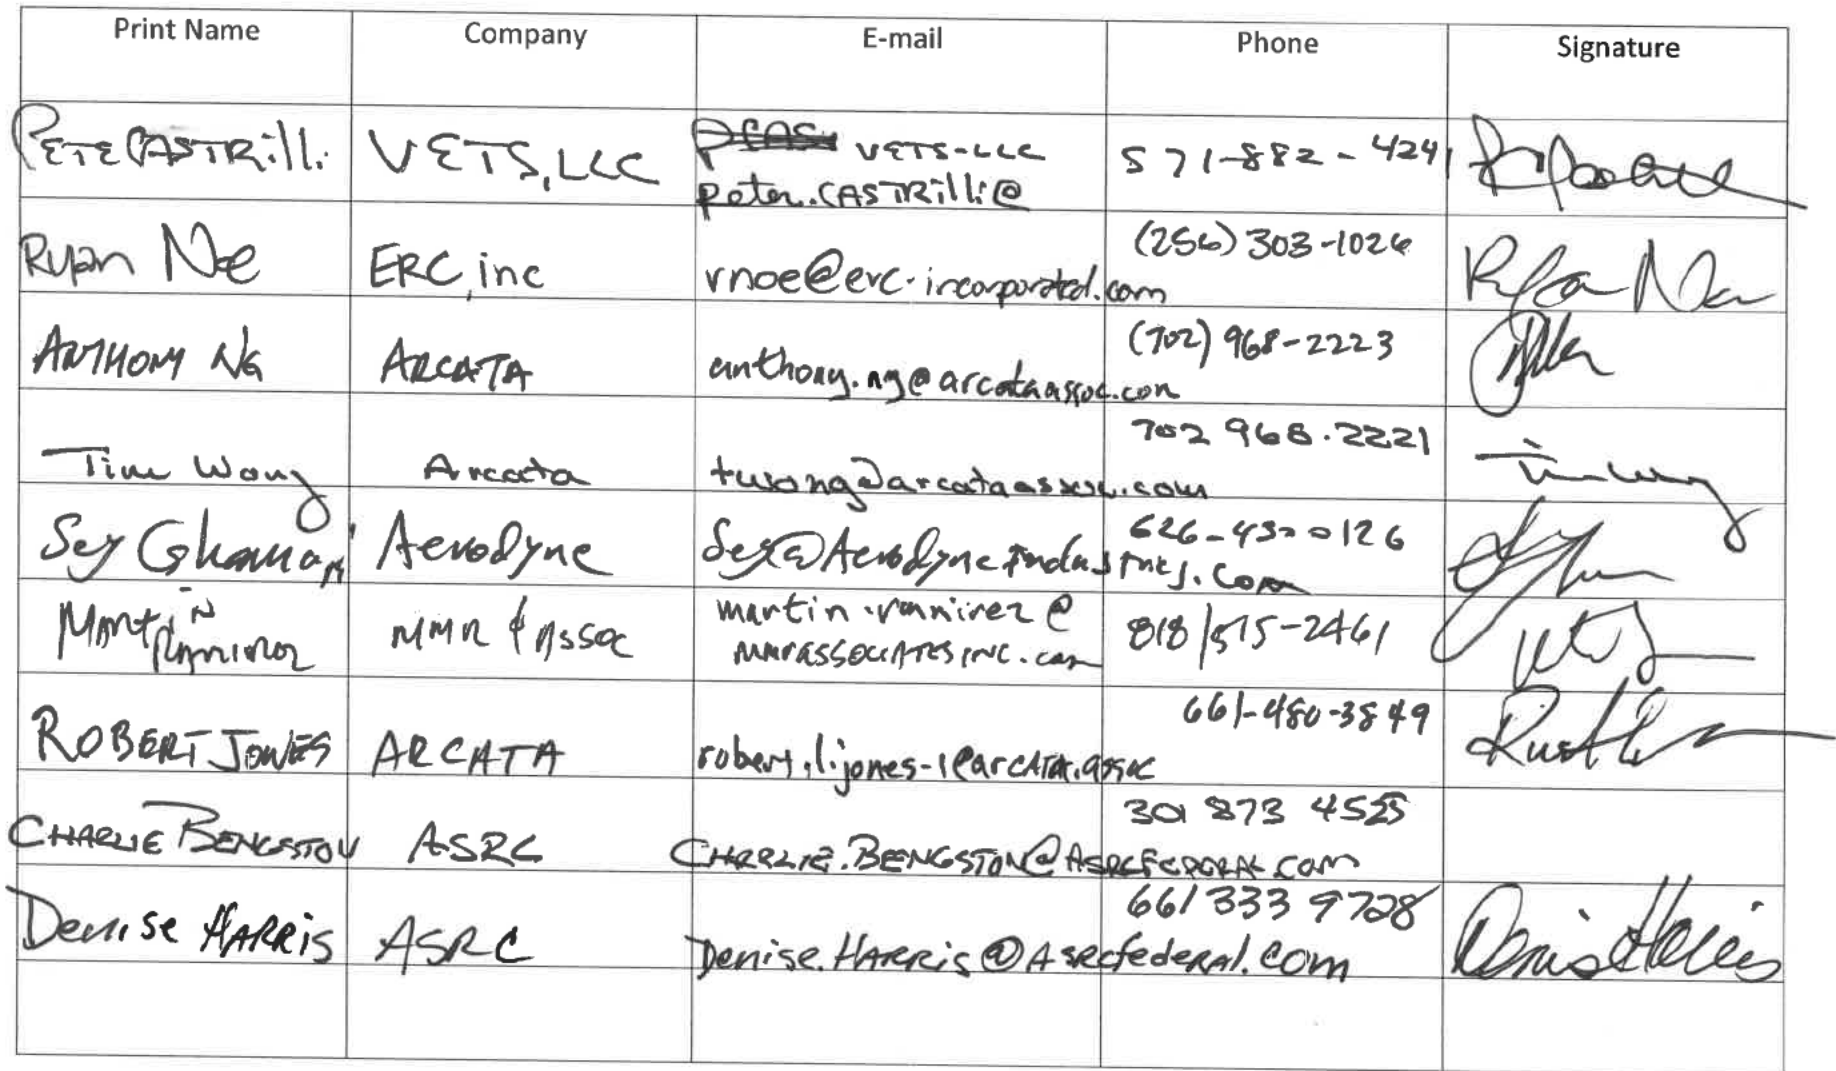 Print Name Company E-mail Phone Signature
PETE CASTRilli VETS, LLC VETS-LLC 571-882-4241
peter.CASTRilli@
Ryan Noe ERC, inc rnoe@erc-incorporated.com (256) 303-1026
ANTHONY NG ARCATA anthony.ng@arcataassoc.com (702) 968-2223
Tim Wong Arcata twong@arcataassoc.com 702 968.2221
Sey Aerodyne Sey@AerodyneIndustries.com 626-
Martin MMR & Assoc martin.ramirez@ 818/515-2461
Ramirez MMRASSOCIATESINC.com
ROBERT JONES ARCATA robert.l.jones-1@arcata.assoc 661-480-3849
CHARLIE BENGSTON ASRC CHARLIE.BENGSTON@ASRCFEDERAL.com 301 873 4525
Denise HARRis ASRC Denise.HARRis@Asrcfederal.com 661 333 9728